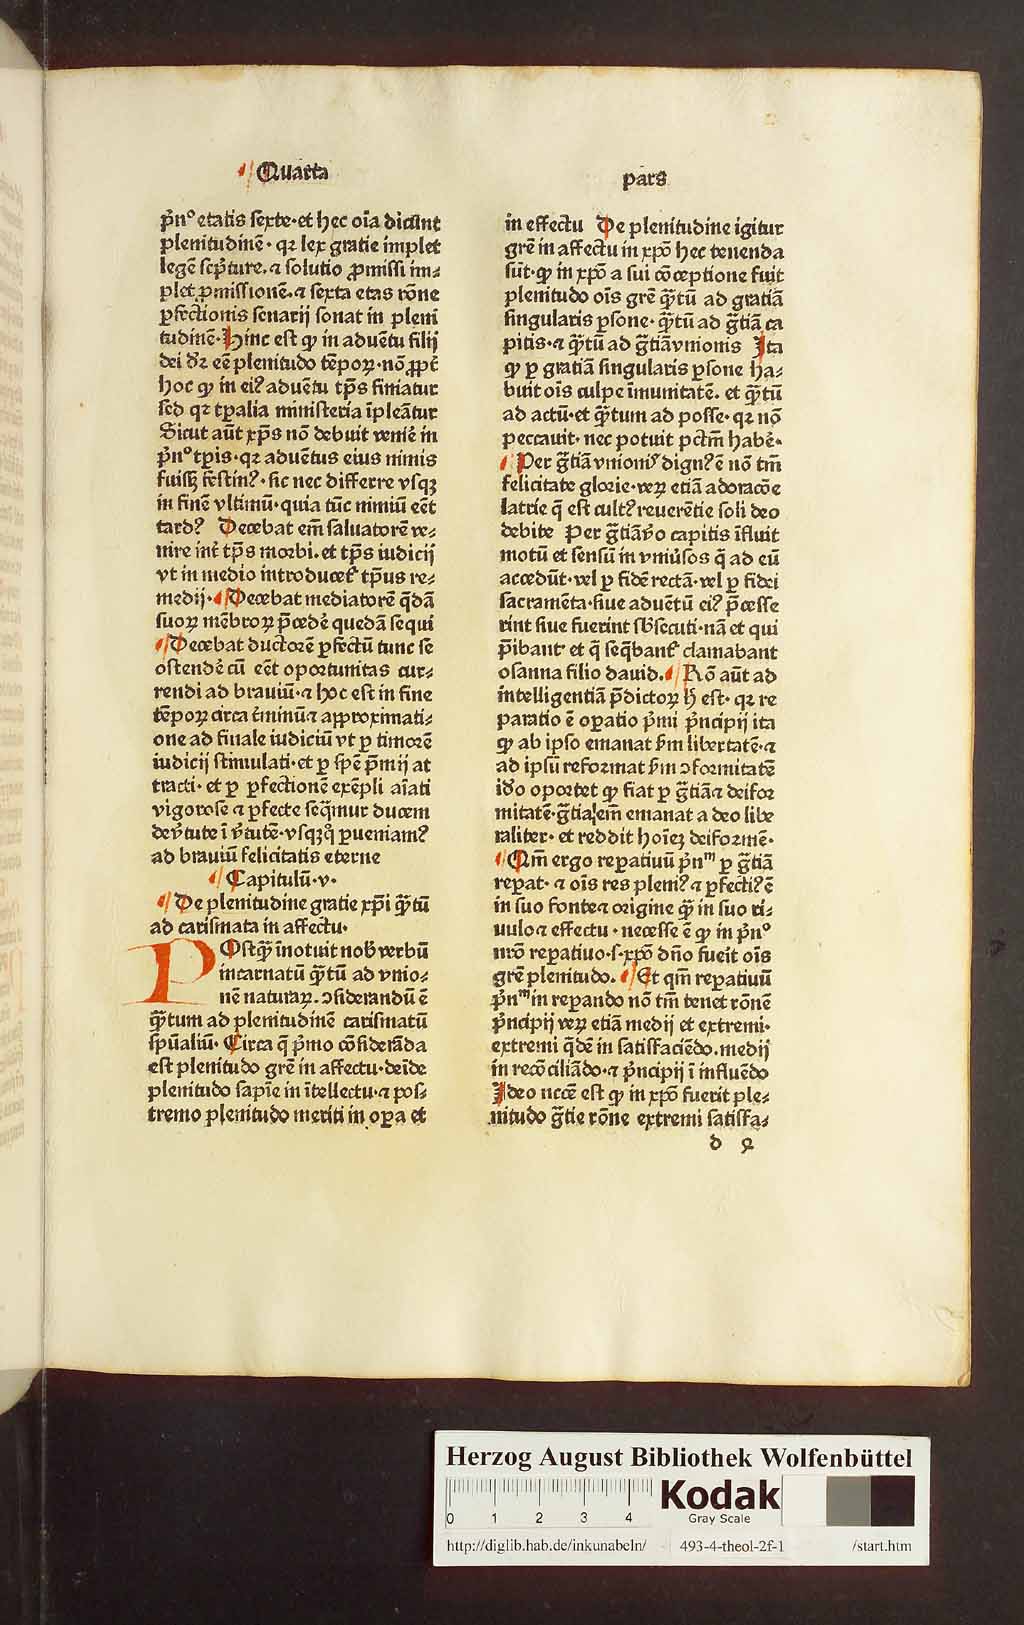 Quarta
pars
p̄nº etatis sexte·et hec oīa dicunt
plenitudinē· qꝛ lex gratie implet
legē scp̄ture.⁊ solutio ꝓmissi im⸗
plet ꝓmissionē.⁊ sexta etas rōne
ꝑfectionis senarij sonat in pleni
tudinē· Hinc est ꝙ in aduētu filij
dei dr̄ eē plenitudo tēpoꝝ·nō ꝓpt̄
hoc ꝙ in eiꝰ aduētu tp̄s finiatur
sed qꝛ tꝑalia ministeria īpleātur
Sicut aūt xp̄s nō debuit venir̄e in
p̄nº tꝑis·qꝛ aduētus eius nimis
fuiss̄ꝫ festinꝰ·sic nec differre vsqꝫ
in finē vltimū·quia tūc nimiū eēt
tardꝰ Decebat em̄ saluatorē ve⸗
nire int̄ tp̄s morbi.et tp̄s iudicij
vt in medio introducet̄ tp̄us re⸗
medij· Decebat mediatorē q̄dā
suoꝝ mēbroꝝ p̄cedē quedā sequi
Decebat ductorē ꝑfectū tunc se
ostendē cū eēt oportunitas cur⸗
rendi ad brauiū·⁊ hoc est in fine
tēpoꝝ circa t̄minū⁊ approximati⸗
one ad finale iudiciū vt ꝑ timorē
iudicij stimulati·et ꝑ spē p̄mij at
tracti·et ꝑ ꝑfectionē exēpli aīati
vigorose ⁊ ꝑfecte seq̄mur ducem
de v̄tute ī v̄tutē·vsqꝫqꝫ ꝑueniamꝰ
ad brauiū felicitatis eterne
Capitulū·v·
De plenitudine gratie xp̄i q̄ꝫtū
ad carismata in affectu·
POstq̄ꝫ īnotuit nob̄ verbū
incarnatū q̄ꝫtū ad vnio⸗
nē naturaꝝ.ↄsiderandū ē
q̄ꝫtum ad plenitudinē carismatū
spūaliū· Circa q̄ p̄mo cōsiderāda
est plenitudo grē in affectu·deīde
plenitudo sapīe in ītellectu·⁊ pos⸗
tremo plenitudo meriti in oꝑa et
in effectu De plenitudine igitur
grē in affectu in xp̄o hec tenenda
sūt·ꝙ in xp̄o a sui cōceptione fuit
plenitudo oīs grē q̄ꝫtū ad gratiā
singularis ꝑsone·q̄ꝫtū ad gr̄tiā ca
pitis·⁊ q̄ꝫtū ad gr̄tiā vnionis Ita
ꝙ ꝑ gratiā singularis ꝑsone ha⸗
buit oīs culpe īmunitatē. et q̄ꝫtū
ad actū·et q̄ꝫtum ad posse·qꝛ nō
peccauit·nec potuit pctm̄ habē·
Per gr̄tiā vnionis dignꝰ ē nō tm̄
felicitate glorie·veꝝ etiā adoracōe
latrie q̄ est cultꝰ reuerētie soli deo
debite Per gr̄tiā v̄o capitis īfluit
motū et sensū in vniūsos q̄ ad eū
accedūt·vel ꝑ fidē rectā·vel ꝑ fidei
sacramēta·siue aduētū eiꝰ p̄cesse
rint siue fuerint sb̄secuti·nā et qui
p̄ibant et q̄ seq̄bant̄ clamabant
osanna filio dauid. Rō aūt ad
intelligentiā p̄dictoꝝ h̄ est·qꝛ re
paratio ē oꝑatio p̄mi p̄ncipij ita
ꝙ ab ipso emanat s̄m libertatē·⁊
ad ipsū reformat s̄m ↄformitatē
id̄o oportet ꝙ fiat ꝑ gr̄tiā⁊ deifor
mitatē·gr̄tia em̄ emanat a deo libe
raliter·et reddit hoīeꝫ deiformē·
Qm̄ ergo reꝑatiuū p̄nᵐ ꝑ gr̄tiā
reꝑat·⁊ oīs res pleniꝰ ⁊ ꝑfectiꝰ ē
in suo fonte⁊ origine q̄ꝫ in suo ri⸗
uulo⁊ effectu·necesse ē ꝙ in p̄nº
nr̄o reꝑatiuo·s·xp̄o dn̄o fueit oīs
grē plenitudo. Et qm̄ reꝑatiuū
p̄nᵐ in reꝑando nō tm̄ tenet rōnē
p̄ncipij veꝝ etiā medij et extremi·
extremi q̄dē in satisfaciēdo.medij
in recōciliādo·⁊ p̄ncipij ī influēdo
Ideo nccē est ꝙ in xp̄o fuerit ple⸗
nitudo gr̄tie rōne extremi satisfa⸗
d ꝛ
Herzog August Bibliothek Wolfenbüttel
0 1 2 3 4
Kodak
Gray Scale
http://diglib.hab.de/inkunabeln/ 493-4-theol-2f-1 /start.htm